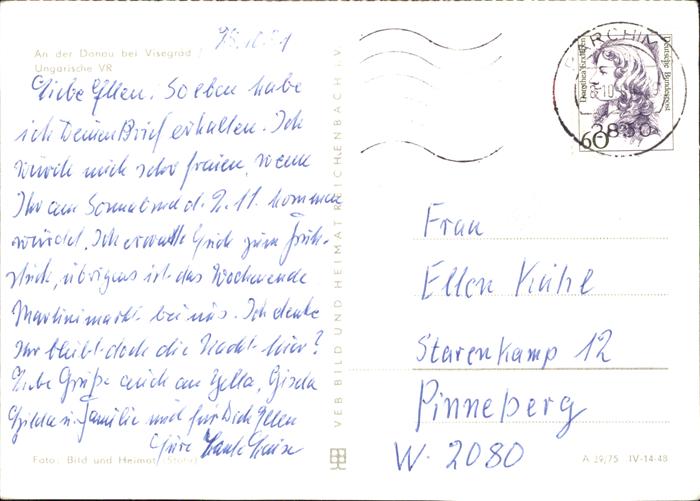 An der Donau bei Visegrad
Ungarische VR
Liebe Ellen. Soeben habe
ich Deinen Brief erhalten. Ich
würde mich sehr freuen, wenn
Ihr am Sonnabend d. 2.11. kommen
würdet. Ich erwarte Euch zum Früh-
stück, übrigens ist das Wochenende
Martinimarkt bei uns. Ich denke
Ihr bleibt doch die Nacht hier?
Liebe Grüße auch an Zella, Gisela
Gilda u. Familie und für Dich Ellen
Eure Tante Luise
Foto: Bild und Heimat
VEB BILD UND HEIMAT REICHENBACH i.V.
PARCHIM
2850
Dorothea Erxleben
Deutsche Bundespost
60
Frau
Ellen Kühl
Starenkamp 12
Pinneberg
W. 2080
A 29/75 IV-14-48